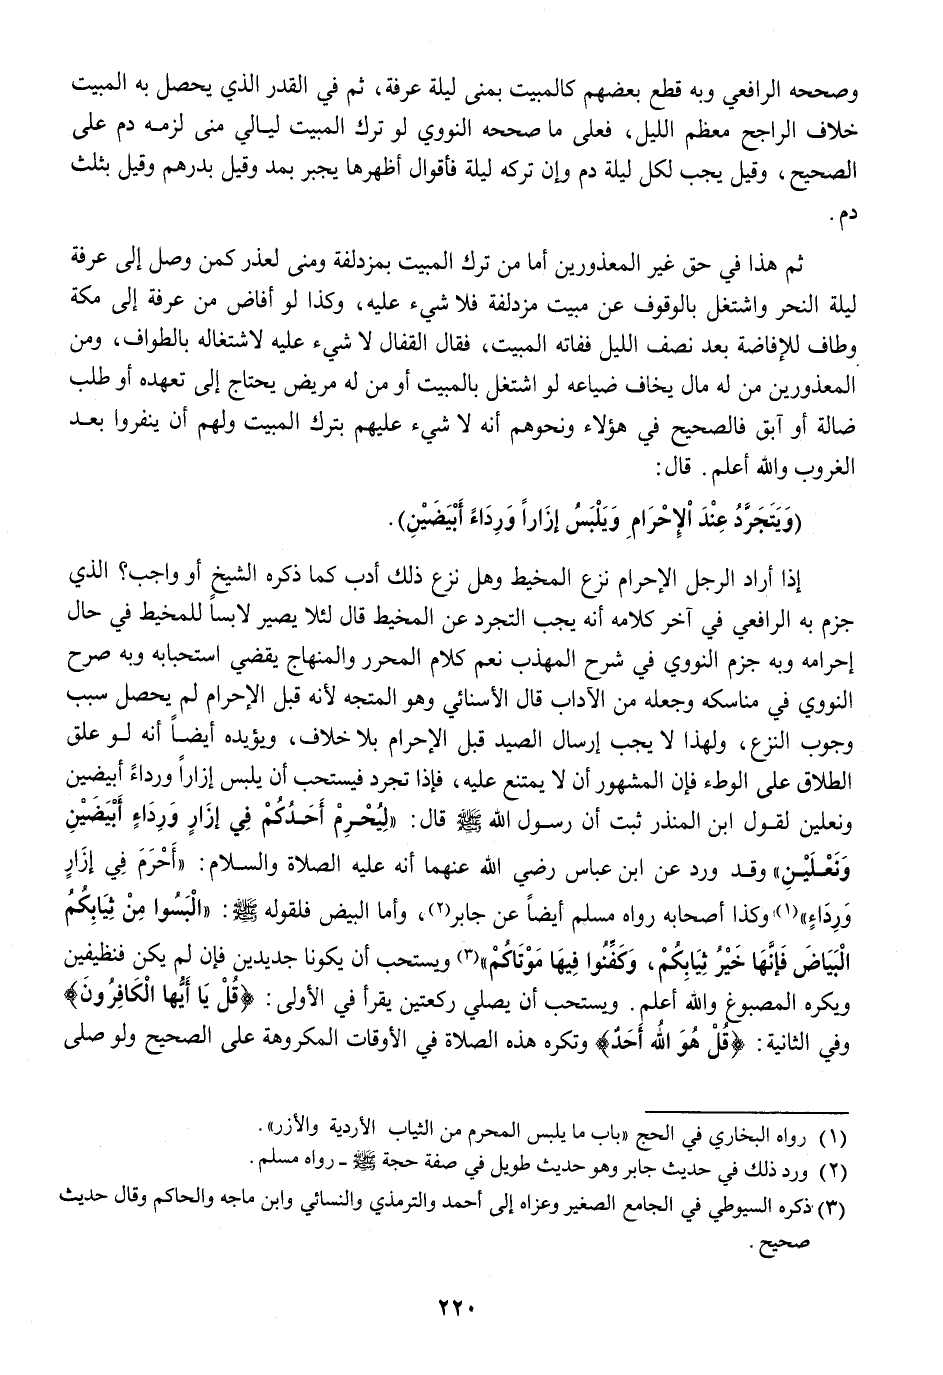 وصححه الرافعي وبه قطع بعضهم كالمبيت بمنى ليلة عرفة، ثم في القدر الذي يحصل به المبيت
خلاف الراجح معظم الليل، فعلى ما صححه النووي لو ترك المبيت ليالي منى لزمه دم على
الصحيح، وقيل يجب لكل ليلة دم وإن تركه ليلة فأقوال أظهرها يجبر بمد وقيل بدرهم وقيل بثلث
دم.
ثم هذا في حق غير المعذورين أما من ترك المبيت بمزدلفة ومنى لعذر كمن وصل إلى عرفة
ليلة النحر واشتغل بالوقوف عن مبيت مزدلفة فلا شيء عليه، وكذا لو أفاض من عرفة إلى مكة
وطاف للإفاضة بعد نصف الليل ففاته المبيت، فقال القفال لا شيء عليه لاشتغاله بالطواف، ومن
المعذورين من له مال يخاف ضياعه لو اشتغل بالمبيت أو من له مريض يحتاج إلى تعهده أو طلب
ضالة أو آبق فالصحيح في هؤلاء ونحوهم أنه لا شيء عليهم بترك المبيت ولهم أن ينفروا بعد
الغروب والله أعلم. قال:
(وَيَتَجَرَّدُ عِنْدَ الإِحْرَامِ وَيَلْبَسُ إزَاراً وَرِدَاءً أَبْيَضَيْنِ).
إذا أراد الرجل الإحرام نزع المخيط وهل نزع ذلك أدب كما ذكره الشيخ أو واجب؟ الذي
جزم به الرافعي في آخر كلامه أنه يجب التجرد عن المخيط قال لئلا يصير لابساً للمخيط في حال
إحرامه وبه جزم النووي في شرح المهذب نعم كلام المحرر والمنهاج يقضي استحبابه وبه صرح
النووي في مناسكه وجعله من الآداب قال الأسنائي وهو المتجه لأنه قبل الإحرام لم يحصل سبب
وجوب النزع، ولهذا لا يجب إرسال الصيد قبل الإحرام بلا خلاف، ويؤيده أيضاً أنه لو علق
الطلاق على الوطء فإن المشهور أن لا يمتنع عليه، فإذا تجرد فيستحب أن يلبس إزاراً ورداءً أبيضين
ونعلين لقول ابن المنذر ثبت أن رسول الله ﷺ قال: «لِيُحْرِمْ أَحَدُكُمْ فِي إزَارٍ وَرِدَاءٍ أَبْيَضَيْنِ
وَنَعْلَيْنِ» وقد ورد عن ابن عباس رضي الله عنهما أنه عليه الصلاة والسلام: «أَحْرَمَ فِي إزَارٍ
وَرِدَاءٍ»(١) وكذا أصحابه رواه مسلم أيضاً عن جابر(٢)، وأما البيض فلقوله ﷺ: «الْبَسُوا مِنْ ثِيَابِكُمُ
الْبَيَاضَ فَإِنَّهَا خَيْرُ ثِيَابِكُمْ، وَكَفِّنُوا فِيهَا مَوْتَاكُمْ»(٣) ويستحب أن يكونا جديدين فإن لم يكن فنظيفين
ويكره المصبوغ والله أعلم. ويستحب أن يصلي ركعتين يقرأ في الأولى: ﴿قُلْ يَا أَيُّهَا الْكَافِرُونَ﴾
وفي الثانية: ﴿قُلْ هُوَ اللهُ أَحَدٌ﴾ وتكره هذه الصلاة في الأوقات المكروهة على الصحيح ولو صلى
(١) رواه البخاري في الحج «باب ما يلبس المحرم من الثياب الأردية والأزر».
(٢) ورد ذلك في حديث جابر وهو حديث طويل في صفة حجة ﷺ - رواه مسلم.
(٣) ذكره السيوطي في الجامع الصغير وعزاه إلى أحمد والترمذي والنسائي وابن ماجه والحاكم وقال حديث
صحيح.
٢٢٠